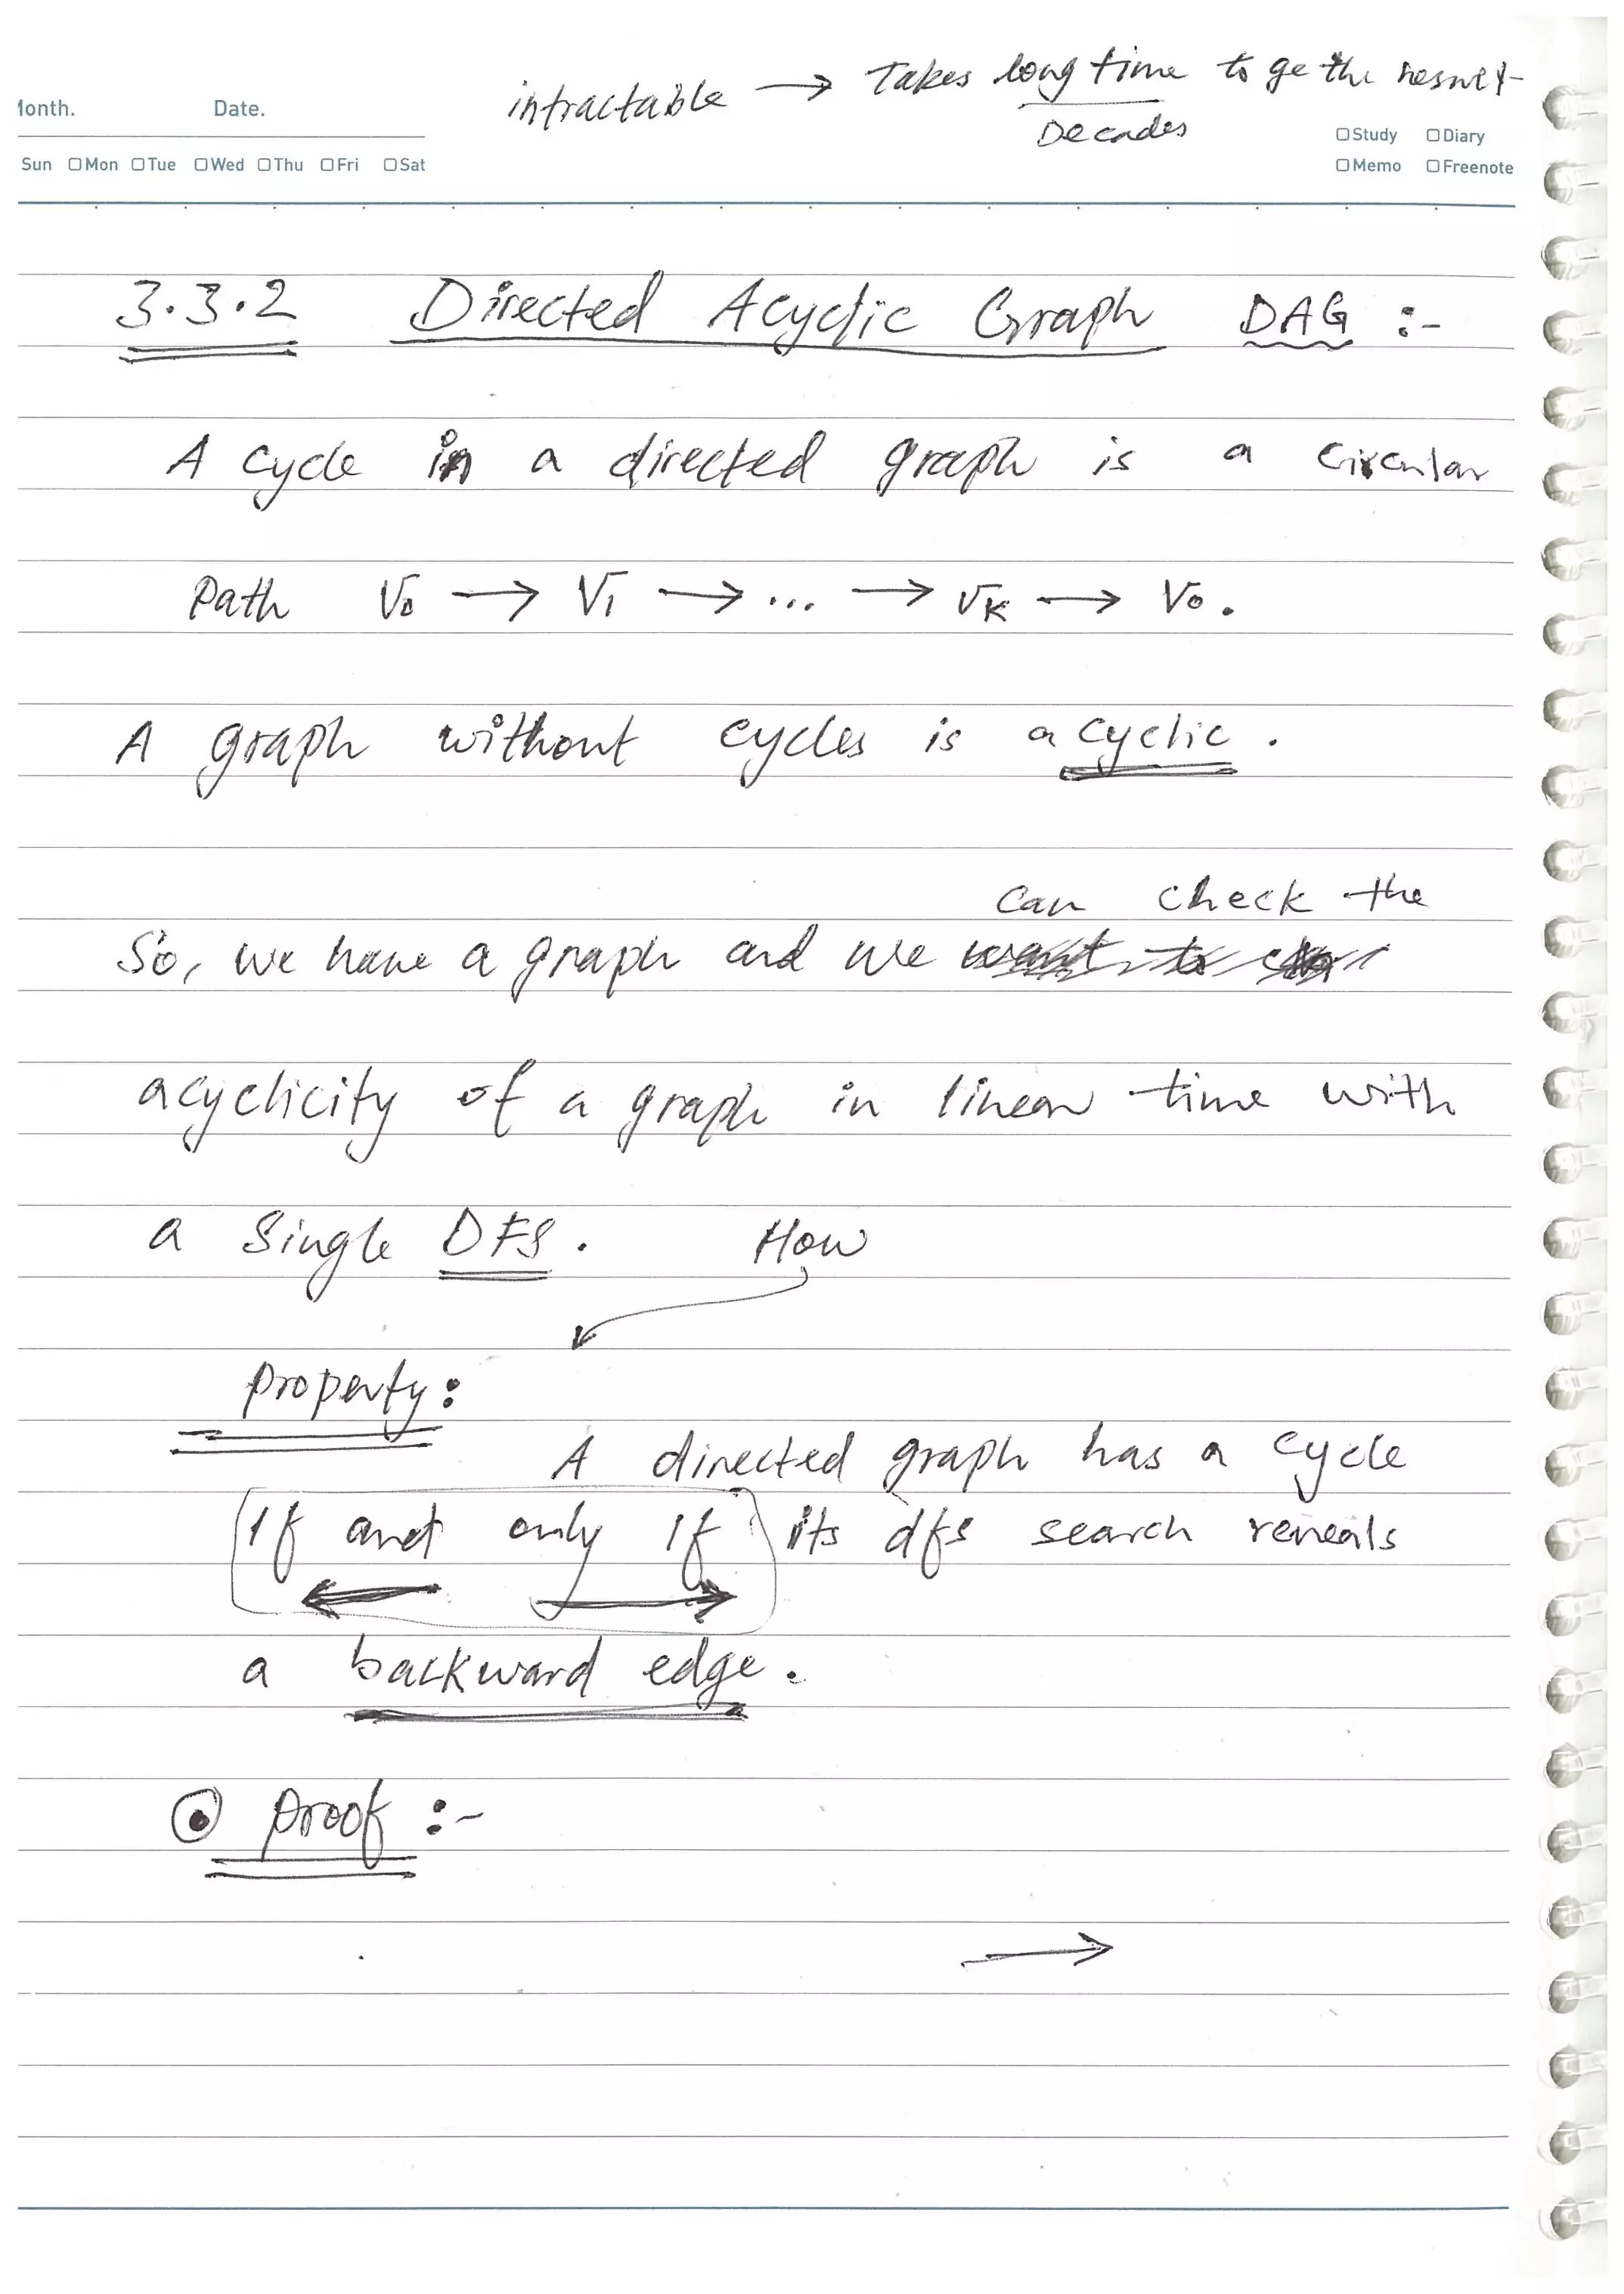 intractable → Takes long time to ge the result
Decades
Month. Date.
□Study □Diary
Sun □Mon □Tue □Wed □Thu □Fri □Sat
□Memo □Freenote
3.3.2 Directed Acyclic Graph DAG :-
A cycle in a directed graph is a circular
Path V₀ → V₁ → ... → Vₖ → V₀.
A graph without cycles is acyclic.
can check the
So, we have a graph and we want to
acyclicity of a graph in linear time with
a Single DFS. How
Property:
A directed graph has a cycle
If and only If its dfs search reveals
a backward edge.
⊙ Proof :-
→